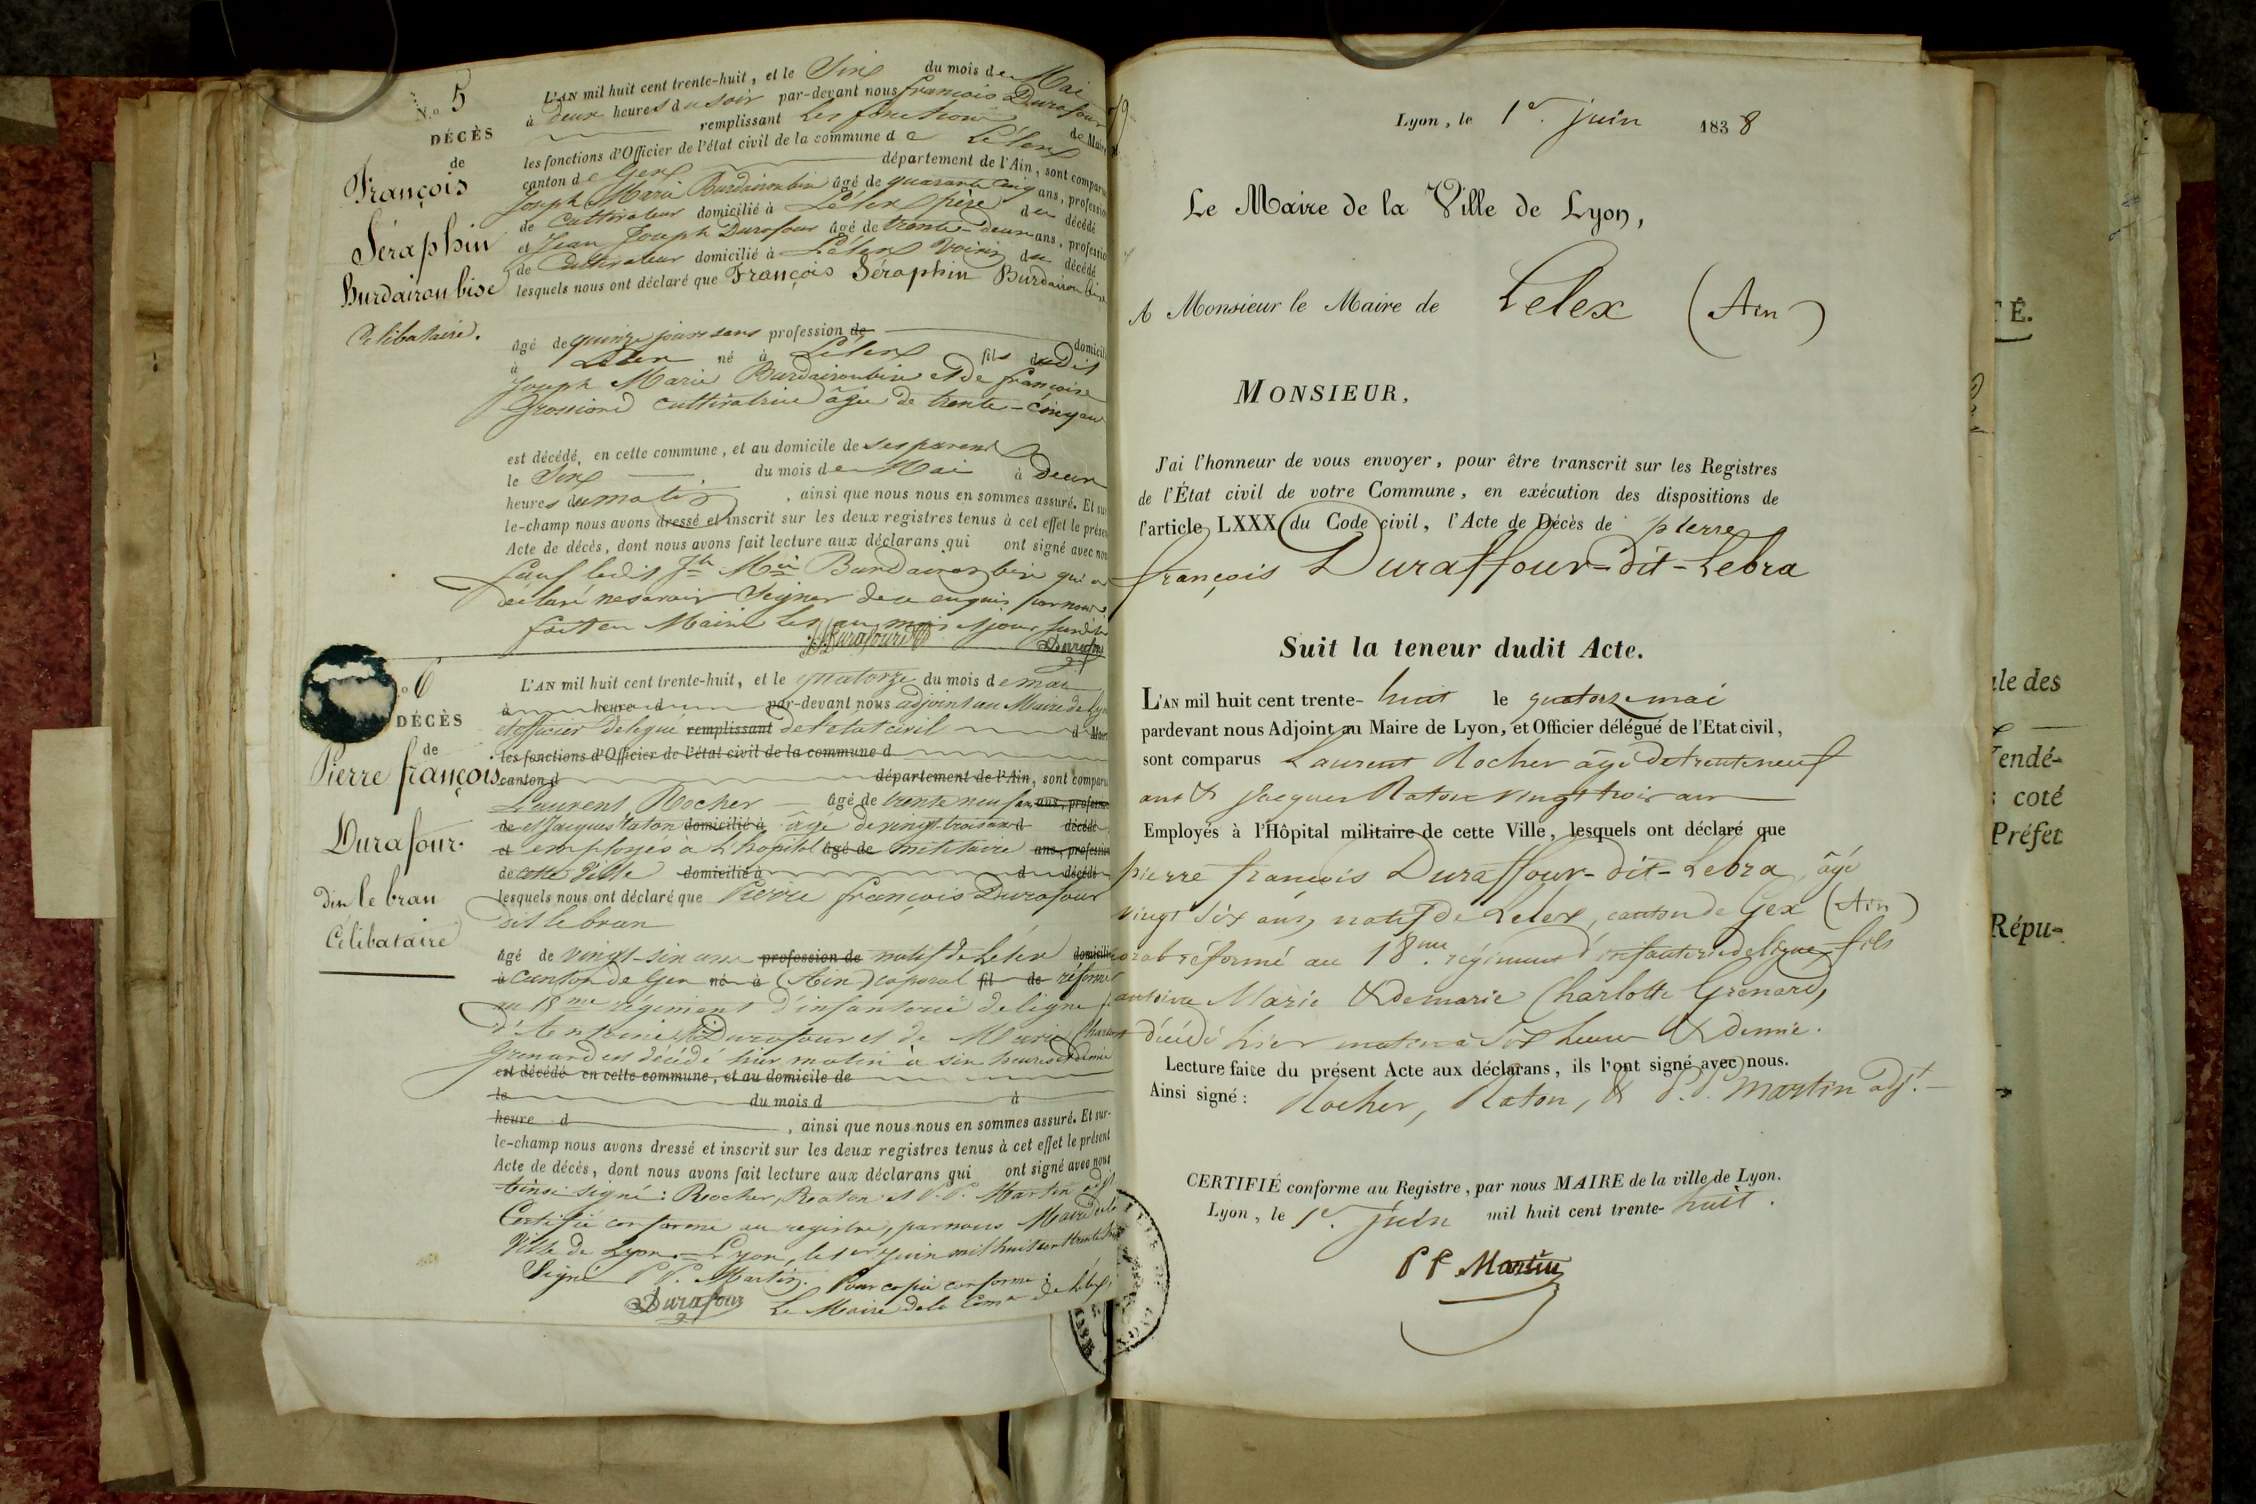 N.o 5
DÉCÈS
de
François
Séraphin
Burdairon bise
Célibataire.
L'AN mil huit cent trente-huit, et le Six du mois de Mai
à deux heures du soir par-devant nous françois Durafour
remplissant les fonctions de Maire
les fonctions d'Officier de l'état civil de la commune de Lélex
canton de Gex département de l'Ain, sont comparus
Joseph Marie Burdaironbise âgé de quarante cinq ans, profession
de Cultivateur domicilié à Lélex père du décédé
et Jean Joseph Durafour âgé de trente-deux ans, profession
de Cultivateur domicilié à Lélex voisin du décédé
lesquels nous ont déclaré que François Séraphin Burdaironbise
âgé de quinze jours sans profession de domicilié
à Lélex né à Lélex fils dudit
Joseph Marie Burdaironbise et de françoise
Grossiord cultivatrice âgée de trente-cinq ans
est décédé, en cette commune, et au domicile de ses parens
le Six du mois de Mai à Deux
heures du matin, ainsi que nous nous en sommes assuré. Et sur
le-champ nous avons dressé et inscrit sur les deux registres tenus à cet effet le présent
Acte de décès, dont nous avons fait lecture aux déclarans qui ont signé avec nous
sauf ledit Jph Mie Burdaironbise qui a
déclaré ne savoir signer de ce enquis par nous
fait en Mairie les an, mois et jour susdits
JJ Durafour Durafour
No 6
DÉCÈS
de
Pierre françois
Durafour.
dit le bran
Célibataire
L'AN mil huit cent trente-huit, et le quatorze du mois de mai
à heure d par-devant nous adjoint au Maire de Lyon
et officier délégué remplissant de l'état civil d Maire
les fonctions d'Officier de l'état civil de la commune d
canton d département de l'Ain, sont comparus
Laurent Rocher âgé de trente neuf ans ans, profession
de et Jacques Raton domicilié à âgé de vingt-trois ans d décédé
et employés à l'hopital âgé de militaire ans, profession
de cette Ville domicilié à d décédé
lesquels nous ont déclaré que Pierre françois Durafour
dit le bran
âgé de vingt-six ans profession de natif de Lélex domicilié
à canton de Gex né à (Ain) caporal fil de réformé
au 18me régiment d'infanterie de ligne
d'Antoine Mie Durafour et de Marie Charlotte
Grenard est décédé hier matin à six heures et demie
est décédé en cette commune, et au domicile de
le du mois d à
heure d, ainsi que nous nous en sommes assuré. Et sur-
le-champ nous avons dressé et inscrit sur les deux registres tenus à cet effet le présent
Acte de décès, dont nous avons fait lecture aux déclarans qui ont signé avec nous
Ainsi signé: Rocher, Raton et P.P. Martin adjt
Certifié conforme au registre, par nous Maire de la
Ville de Lyon. Lyon, le 1er juin mil huit cent trente huit
Signé P.P. Martin. Pour copie conforme:
Durafour Le Maire de la Comne de Lélex
Lyon, le 1er. juin 1838
Le Maire de la Ville de Lyon,
A Monsieur le Maire de Lelex (Ain)
MONSIEUR,
J'ai l'honneur de vous envoyer, pour être transcrit sur les Registres
de l'État civil de votre Commune, en exécution des dispositions de
l'article LXXX du Code civil, l'Acte de Décès de pierre
françois Duraffour-dit-Lebra
Suit la teneur dudit Acte.
L'AN mil huit cent trente-huit le quatorze mai
pardevant nous Adjoint au Maire de Lyon, et Officier délégué de l'Etat civil,
sont comparus Laurent Rocher âgé de trente neuf
ans & Jacques Raton vingt trois ans
Employés à l'Hôpital militaire de cette Ville, lesquels ont déclaré que
pierre françois Duraffour-dit-Lebra, âgé
vingt six ans, natif de Lelex, canton de Gex (Ain)
caporal réformé au 18me. régiment d'infanterie de ligne, fils
antoine Marie & de marie Charlotte Grenard,
décédé hier matin à six heures & demie.
Lecture faite du présent Acte aux déclarans, ils l'ont signé avec nous.
Ainsi signé: Rocher, Raton, & P.P. Martin adjt.
CERTIFIÉ conforme au Registre, par nous MAIRE de la ville de Lyon.
Lyon, le 1er. juin mil huit cent trente-huit.
PP Martin
É.
ale des
Vendé-
coté
Préfet
Répu-